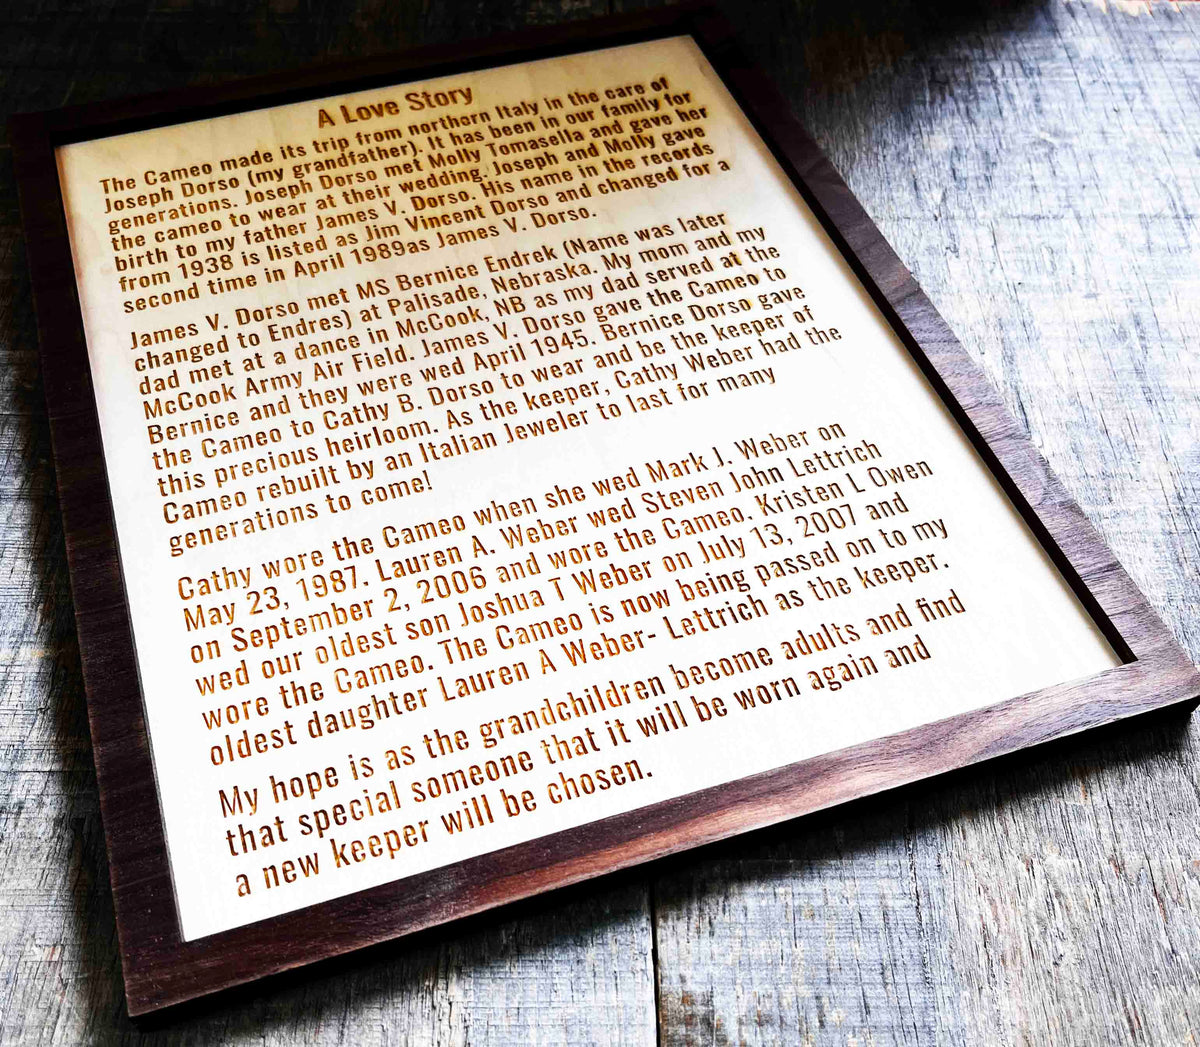 A Love Story
The Cameo made its trip from northern Italy in the care of
Joseph Dorso (my grandfather). It has been in our family for
generations. Joseph Dorso met Molly Tomasella and gave her
the cameo to wear at their wedding. Joseph and Molly gave
birth to my father James V. Dorso. His name in the records
from 1938 is listed as Jim Vincent Dorso and changed for a
second time in April 1989as James V. Dorso.
James V. Dorso met MS Bernice Endrek (Name was later
changed to Endres) at Palisade, Nebraska. My mom and my
dad met at a dance in McCook, NB as my dad served at the
McCook Army Air Field. James V. Dorso gave the Cameo to
Bernice and they were wed April 1945. Bernice Dorso gave
the Cameo to Cathy B. Dorso to wear and be the keeper of
this precious heirloom. As the keeper, Cathy Weber had the
Cameo rebuilt by an Italian Jeweler to last for many
generations to come!
Cathy wore the Cameo when she wed Mark J. Weber on
May 23, 1987. Lauren A. Weber wed Steven John Lettrich
on September 2, 2006 and wore the Cameo. Kristen L Owen
wed our oldest son Joshua T Weber on July 13, 2007 and
wore the Cameo. The Cameo is now being passed on to my
oldest daughter Lauren A Weber- Lettrich as the keeper.
My hope is as the grandchildren become adults and find
that special someone that it will be worn again and
a new keeper will be chosen.